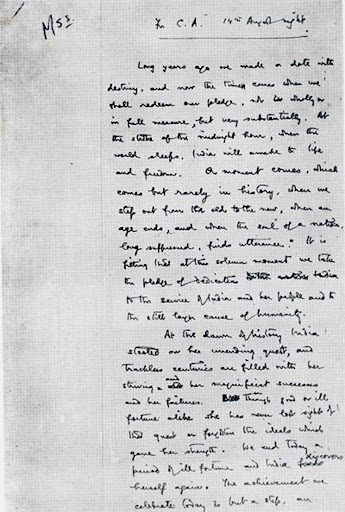 M53
In C.A. 14th August night
Long years ago we made a date with
destiny, and now the time comes when we
shall redeem our pledge, not wholly or
in full measure, but very substantially. At
the stroke of the midnight hour, when the
world sleeps, India will awake to life
and freedom. A moment comes, which
comes but rarely in history, when we
step out from the old to the new, when an
age ends, and when the soul of a nation,
long suppressed, finds utterance. It is
fitting that at this solemn moment we take
the pledge of dedication
to the service of India and her people and to
the still larger cause of humanity.
At the dawn of history India
started on her unending quest, and
trackless centuries are filled with her
striving and her magnificent successes
and her failures. Through good or ill
fortune alike she has never lost sight of
that quest or forgotten the ideals which
gave her strength. We end today a
period of ill fortune and India discovers
herself again. The achievement we
celebrate today is but a step, an